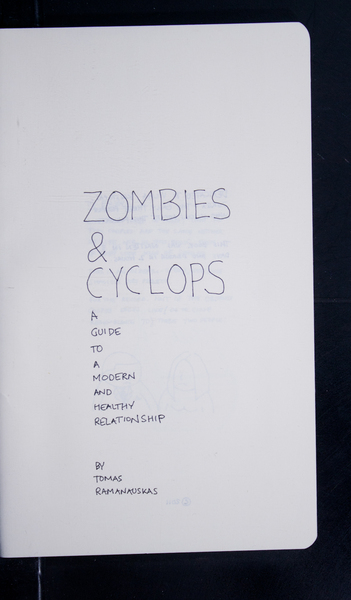 ZOMBIES
&
CYCLOPS
A
GUIDE
TO
A
MODERN
AND
HEALTHY
RELATIONSHIP
BY
TOMAS
RAMANAUSKAS